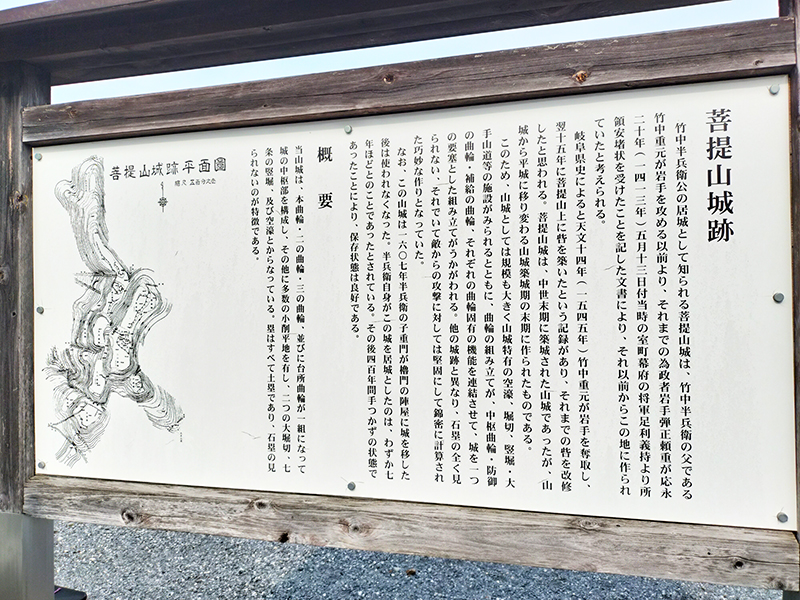 菩提山城跡
竹中半兵衛公の居城として知られる菩提山城は、竹中半兵衛の父である
竹中重元が岩手を攻める以前より、それまでの為政者岩手弾正頼重が応永
二十年(一四一三年)五月十三日付当時の室町幕府の将軍足利義持より所
領安堵状を受けたことを記した文書により、それ以前からこの地に作られ
ていたと考えられる。
岐阜県史によると天文十四年(一五四五年)竹中重元が岩手を奪取し、
翌十五年に菩提山上に砦を築いたという記録があり、それまでの砦を改修
したと思われる。菩提山城は、中世末期に築城された山城であったが、山
城から平城に移り変わる山城築城期の末期に作られたものである。
このため、山城としては規模も大きく山城特有の空濠、堀切、竪堀・大
手山道等の施設がみられるとともに、曲輪の組み立てが、中枢曲輪・防御
の曲輪・補給の曲輪、それぞれの曲輪固有の機能を連結させて、城を一つ
の要塞とした組み立てがうかがわれる。他の城跡と異なり、石塁の全く見
られない、それでいて敵からの攻撃に対しては堅固にして錦密に計算され
た巧妙な作りとなっていた。
なお、この山城は一六〇七年半兵衛の子重門が櫓門の陣屋に城を移した
後は使われなくなった。半兵衛自身がこの城を居城としたのは、わずか七
年ほどとのことであったとされている。その後四百年間手つかずの状態で
あったことにより、保存状態は良好である。
概要
当山城は、本曲輪・二の曲輪・三の曲輪、並びに台所曲輪が一組になって
城の中枢部を構成し、その他に多数の小削平地を有し、二つの大堀切、七
条の竪堀、及び空濠とからなっている。塁はすべて土塁であり、石塁の見
られないのが特徴である。
菩提山城跡平面圖